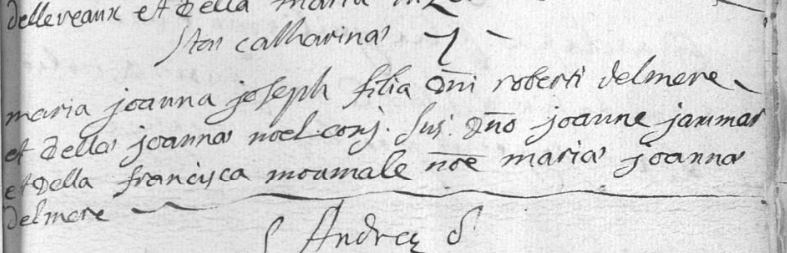 dellereaux et della maria
Stæ catharinæ
maria joanna joseph filia dni roberti delmere
et dellæ joannæ noel conj. sus: dno joanne jammar
et della francisca moumale nōe mariæ joannæ
delmere
S Andreæ